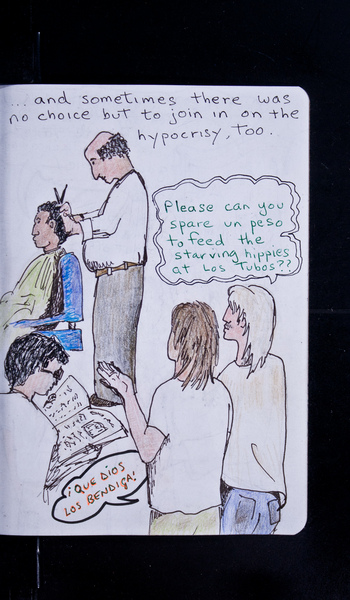 ... and sometimes there was
no choice but to join in on the
hypocrisy, too.
Please can you
spare un peso
to feed the
starving hippies
at Los Tubos??
¡QUE DIOS
LOS BENDIGA!